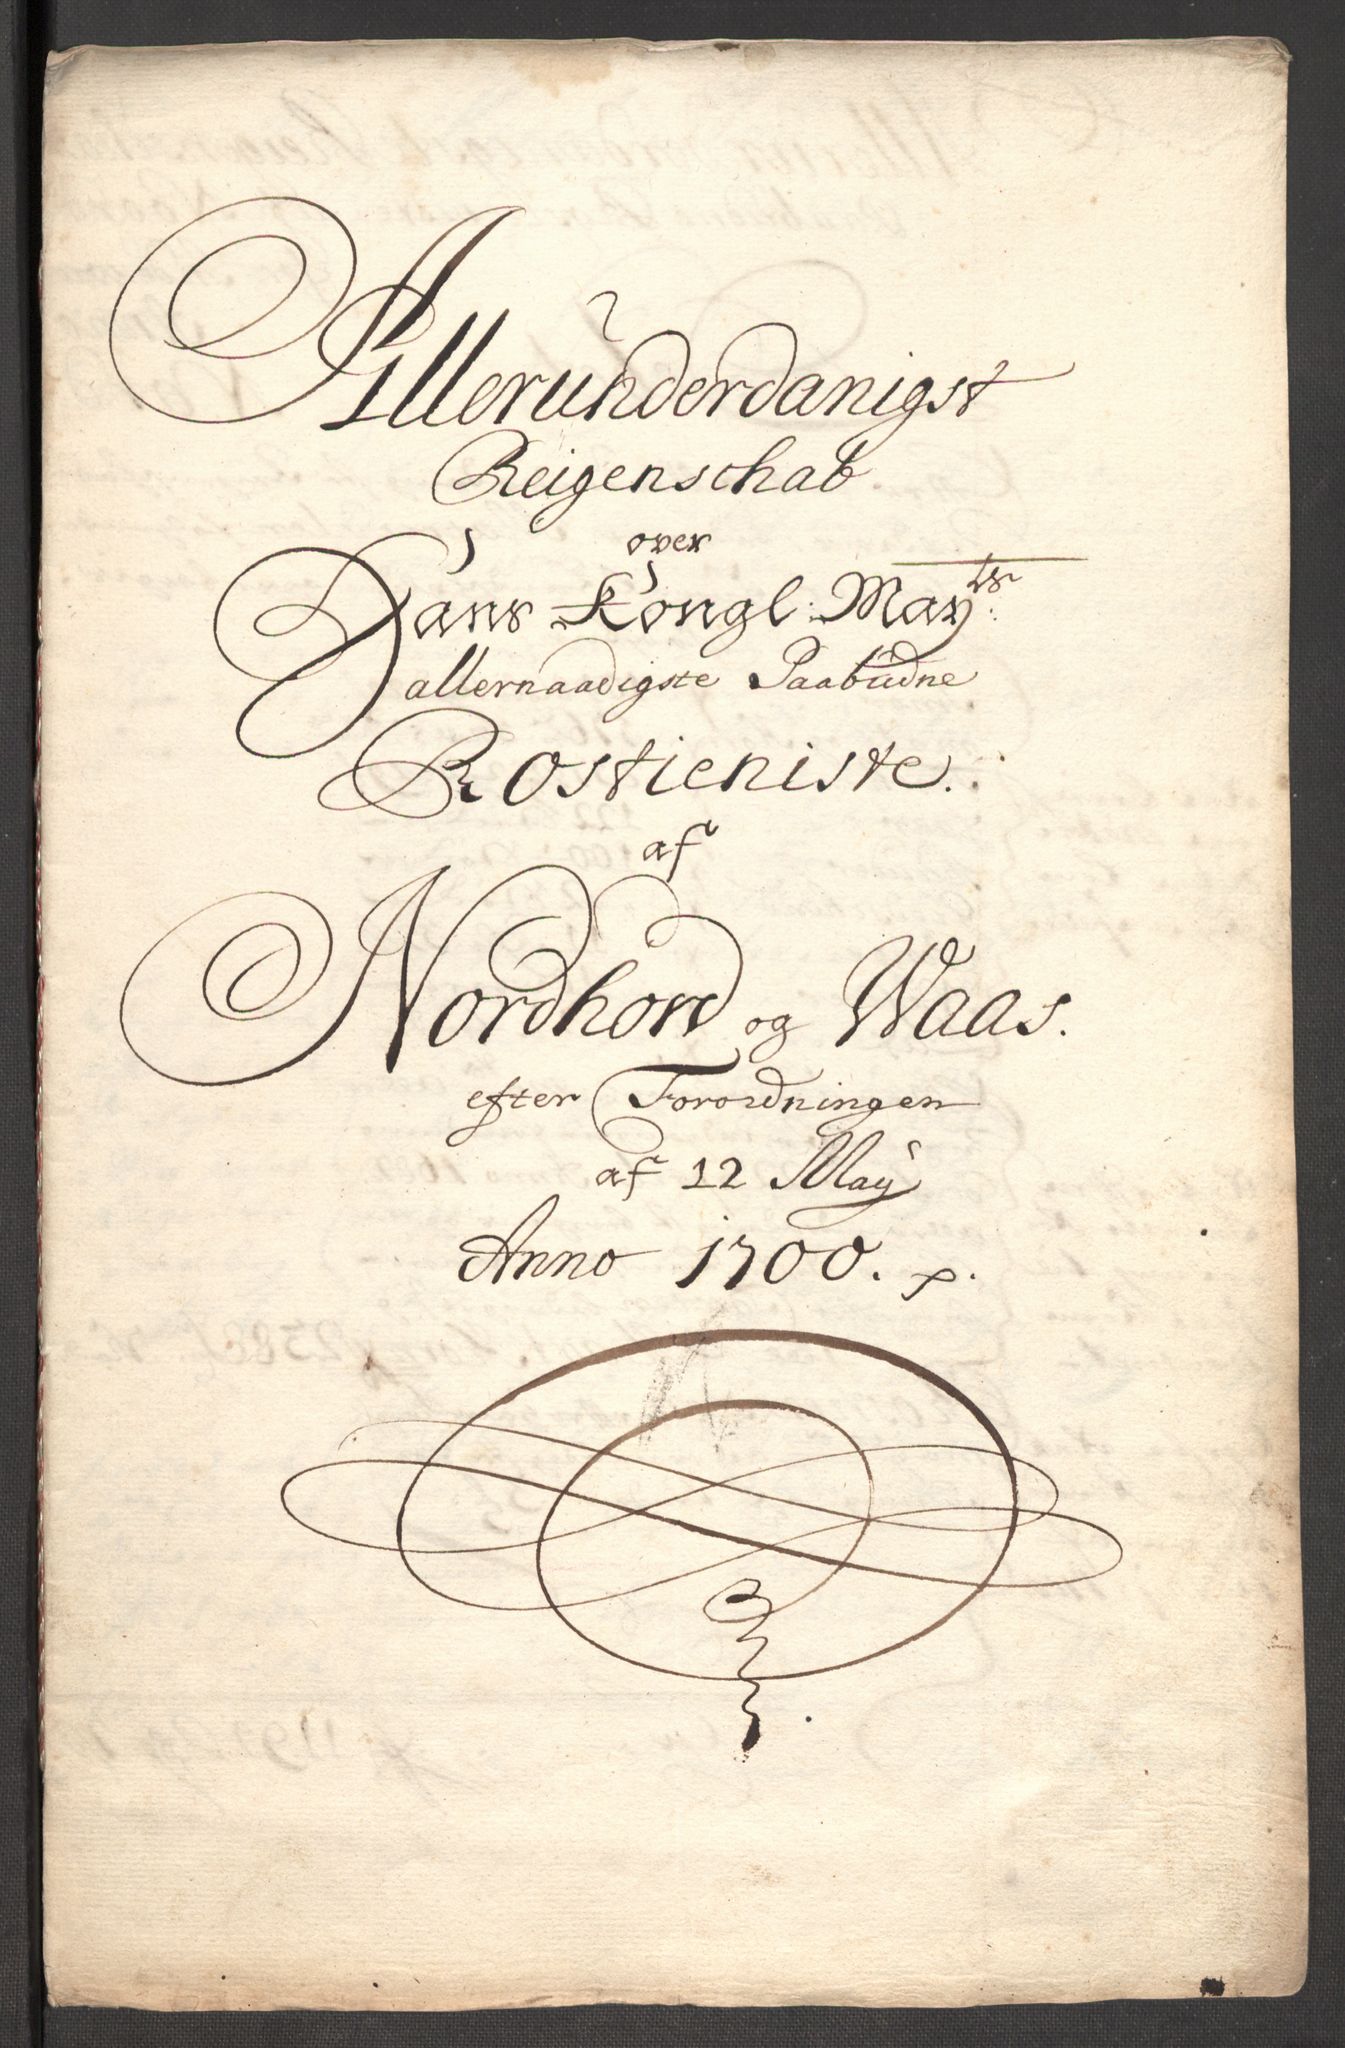 Allerunderdanigst
Reigenschab
over
Hans Kongl: Maÿts:
allernaadigste Paabudne
Rostieniste.
af
Nordhord og Waas.
efter Forordningen
af 12 Maÿ
Anno 1700. p.